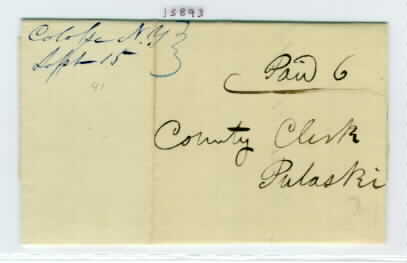 15893
Colosse N.Y
Sept 15
41
Paid 6
County Clerk
Pulaski